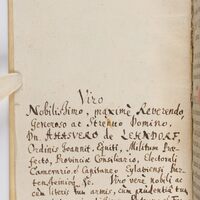 Viro
Nobilissimo, maximè Reverendo,
Generoso ac Strenuo Domino,
Dn. AHASVERO de LEHNDORF,
Ordinis Joannit. Equiti, Militum Præ-
fecto, Provinciæ Consiliario, Electorali
Camerario, & Capitaneo
tensteinico &c. Viro verè nobili ac
cùm literis tùm armis, cùm prudentiâ tùm